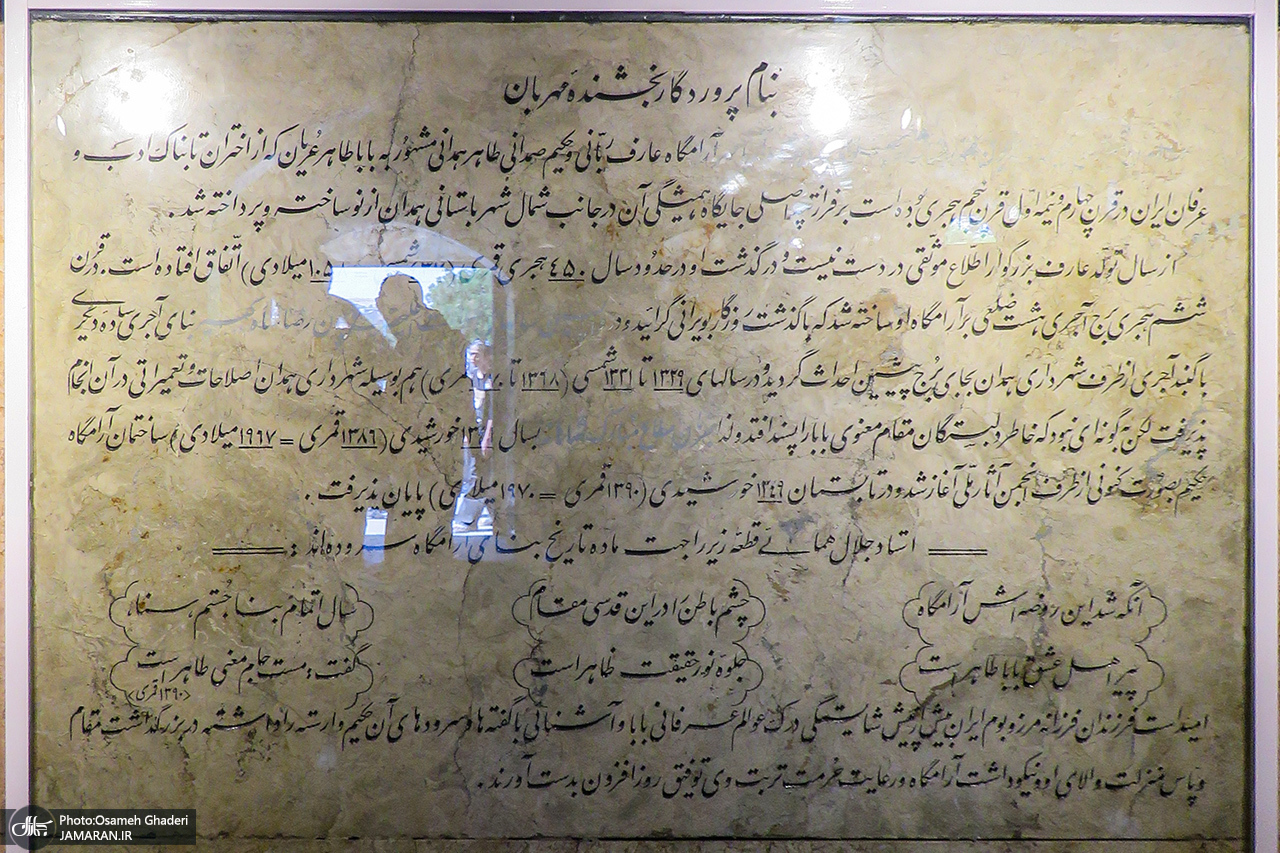 بنام پروردگار بخشندهٔ مهربان
آرامگاه عارف ربّانی و حکیم صمدانی طاهر همدانی مشهور به باباطاهر عریان که از اختران تابناک ادب و
عرفان ایران در قرن چهارم و نیمه اوّل قرن پنجم هجری بوده است بر فراز تپه اصلی جایگاه همیشگی آن در جانب شمال شهر باستانی همدان از نو ساخته و پرداخته شد .
از سال تولّد عارف بزرگوار اطلاع موثّقی در دست نیست و درگذشت او در حدود سال ۴۵۰ هجری میلادی) اتّفاق افتاده است . در قرن
ششم هجری برج آجری هشت ضلعی بر آرامگاه او ساخته شد که با گذشت روزگار بویرانی گرائید و در بنای آجری ساده دیگری
با گنبد آجری از طرف شهرداری همدان بجای برج پیشین احداث گردید و در سالهای ۱۳۲۹ تا ۱۳۳۱ شمسی (۱۳۶۸ تا قمری) هم بوسیله شهرداری همدان اصلاحات و تعمیراتی در آن انجام
پذیرفت لکن به گونه ای نبود که خاطر دلبستگان مقام معنوی بابا را پسند افتد و لذا بسال خورشیدی (۱۳۸۶ قمری = ۱۹۶۷ میلادی) ساختمان آرامگاه
حکیم بصورت کنونی از طرف انجمن آثار ملّی آغاز شد و در تابستان ۱۳۴۹ خورشیدی (۱۳۹۰ قمری = ۱۹۷۰ میلادی) پایان پذیرفت .
استاد جلال همائی قطعه زیر را جهت ماده تاریخ بنای آرامگاه سروده اند :
آنکه شد این روضه اش آرامگاه
پیر اهل عشق بابا طاهر است
چشم باطن را در این قدسی مقام
جلوه نور حقیقت ظاهر است
سال اتمام بنا جستم سنا
گفت : مست جام معنی طاهر است
(۱۳۹۰ قمری)
امید است فرزندان فرزانه مرز و بوم ایران بیش از پیش شایستگی درک عوالم عرفانی بابا و آشنائی با گفته ها و سروده های آن حکیم وارسته را داشته در بزرگداشت مقام
و پاس منزلت والای او و نیکو داشت آرامگاه و رعایت حرمت تربت وی توفیق روزافزون بدست آورند .
Photo:Osameh Ghaderi
JAMARAN.IR